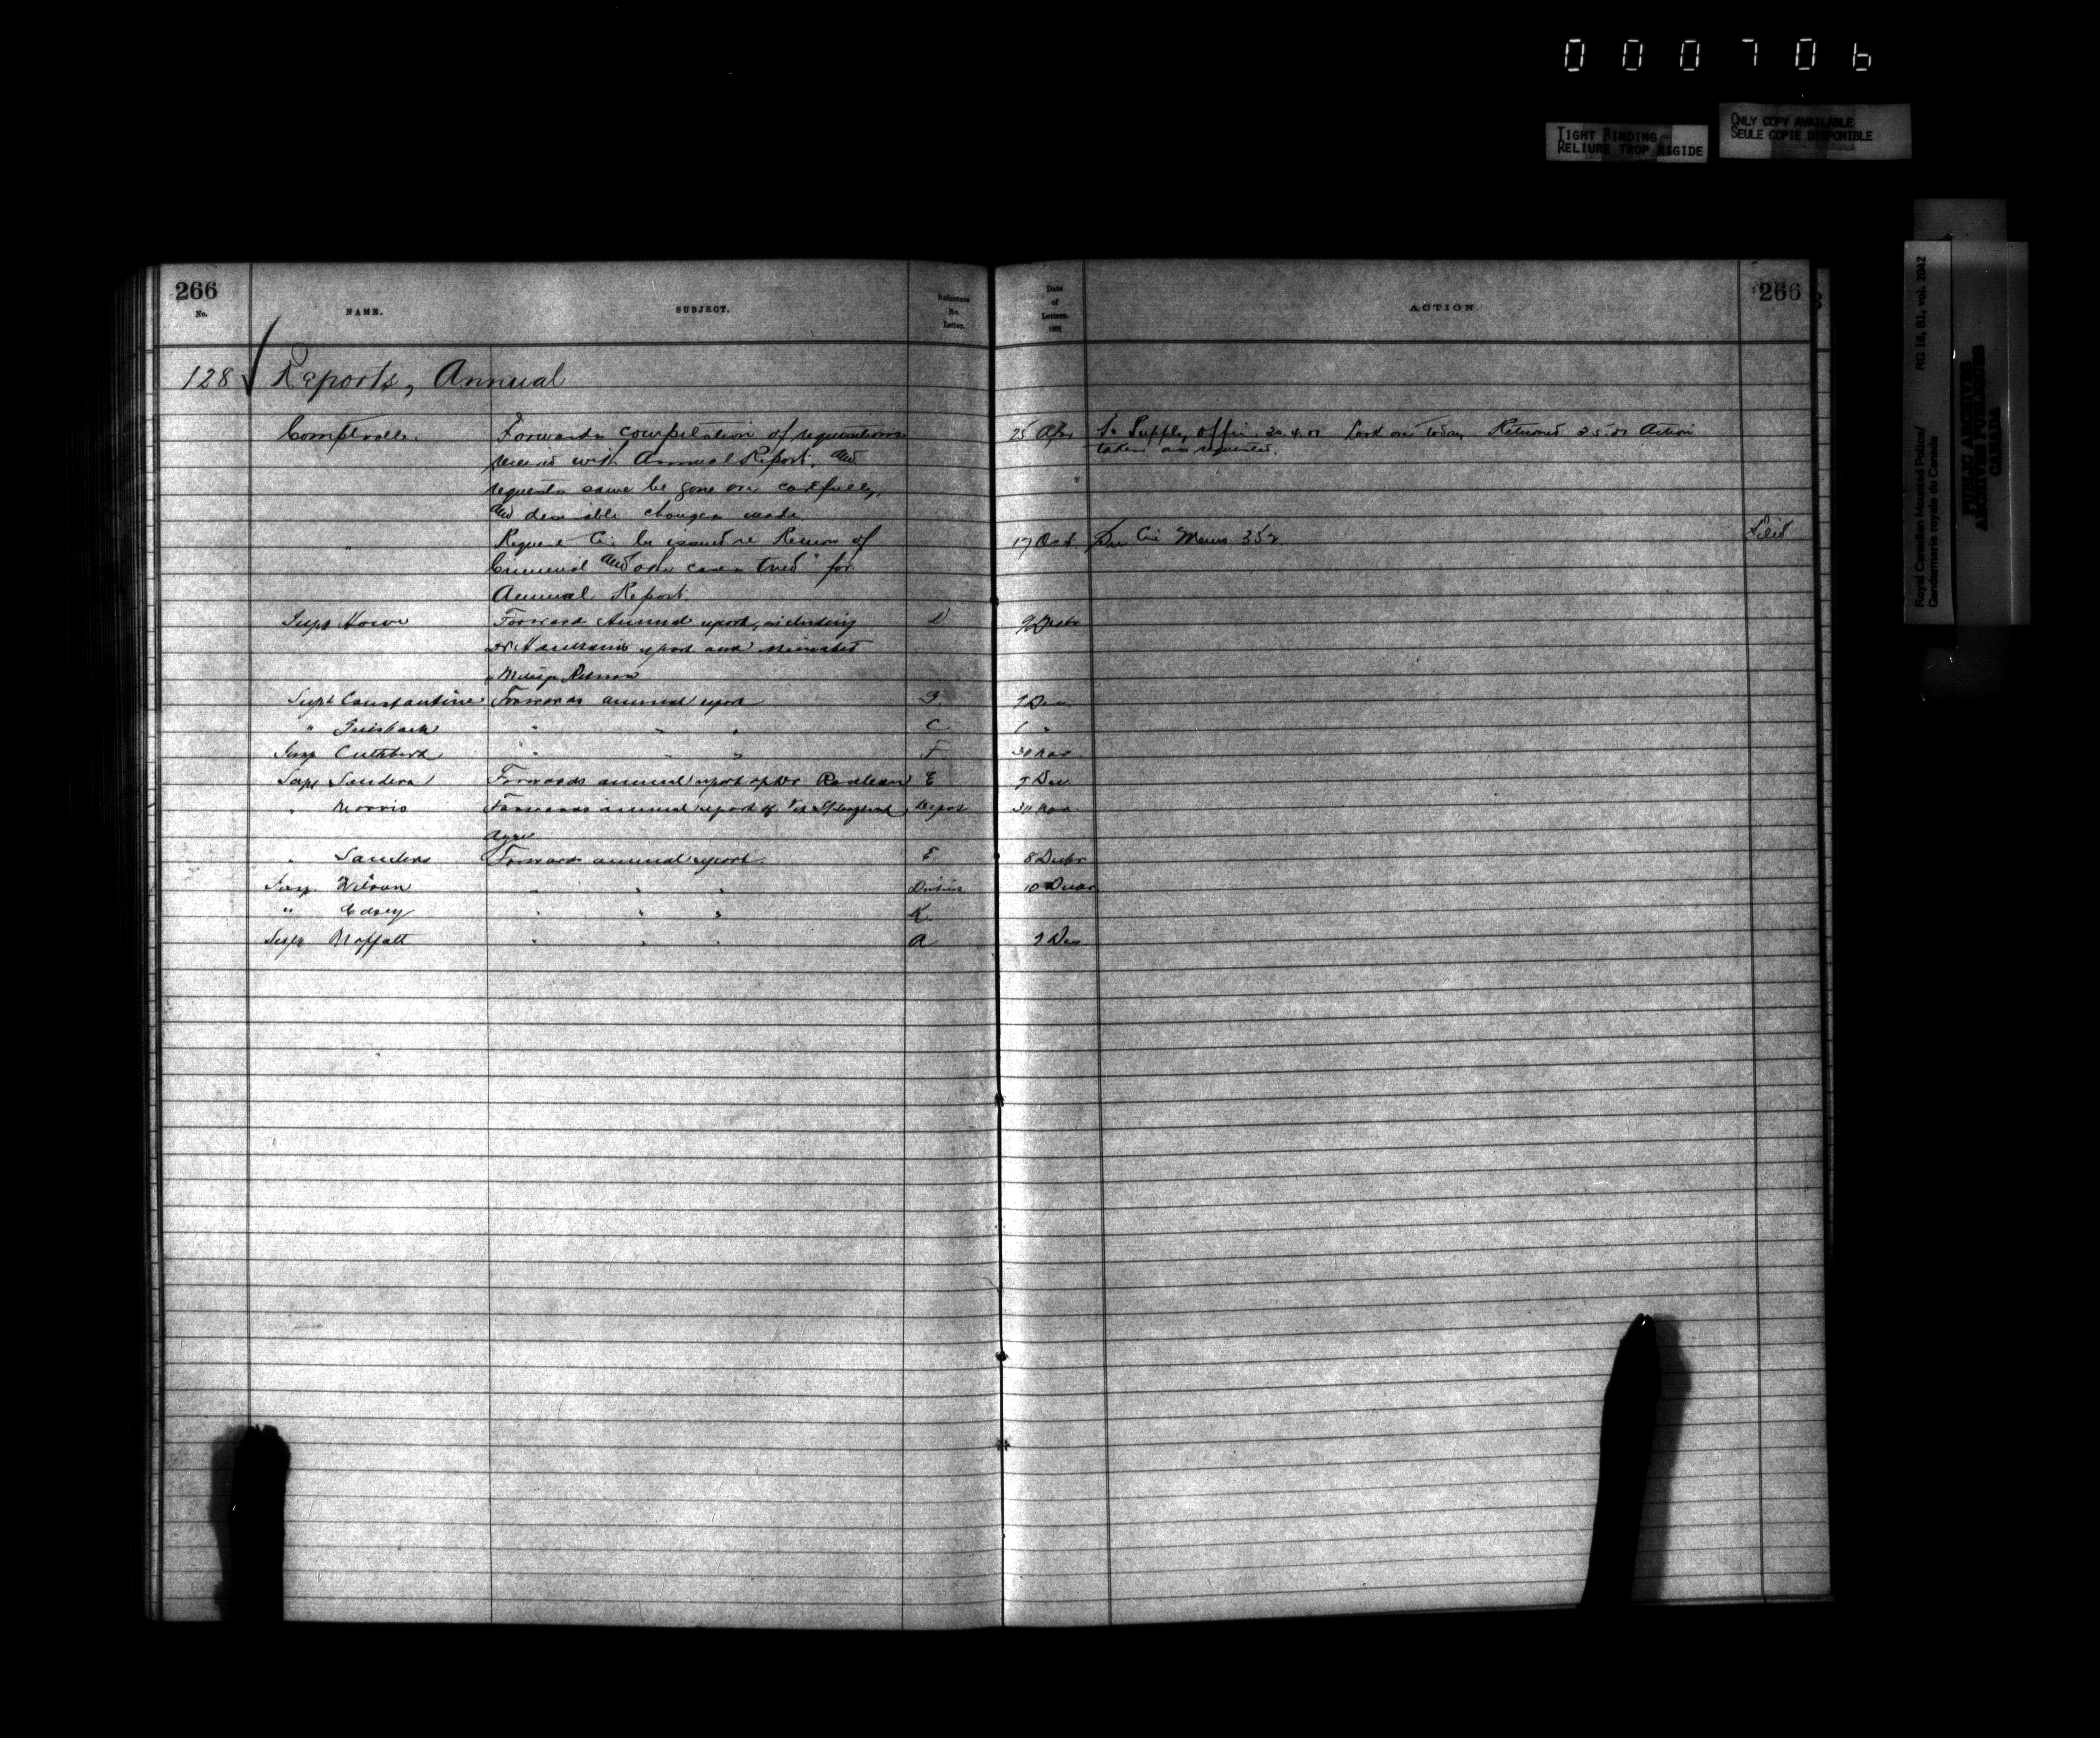 000706
TIGHT BINDING
RELIURE TROP RIGIDE
ONLY COPY AVAILABLE
SEULE COPIE DISPONIBLE
Royal Canadian Mounted Police/ RG 18, B1, vol. 2042
Gendarmerie royale du Canada
PUBLIC ARCHIVES
ARCHIVES PUBLIQUES
CANADA
266 266
No. NAME. SUBJECT. Reference No. Letter. Date of Letters. ACTION.
128 Reports, Annual
Comptroller. Forwards compilation of requisitions 25 Apr To Supply Offi 30.4.01 Returned 2.5.01 Action
received with Annual Report, and taken as requested.
requests same be gone over carefully,
and desirable changes made
" Request Cir. be issued re Return of 17 Oct See Cir Memo Filed
Criminal and other cases tried" for
Annual Report.
Supt Howe Forwards Annual report, including D 9 Decbr
report and
Mileage Return
Supt Constantine Forwards annual report G Dec
" Griesbach " " " C "
Insp Cuthbert " " " F 30 Nov
Supt Sanders Forwards annual report of Dr Rouleau E Dec
" Morris Forwards annual report of Vet S/Sergeant Depot 30 Nov
Ayre
" Sanders Forwards annual report E 8 Decbr
Insp. Wilson " " " 10 Decbr
" Casey " " " K.
Supt Moffatt " " " A 9 Dec